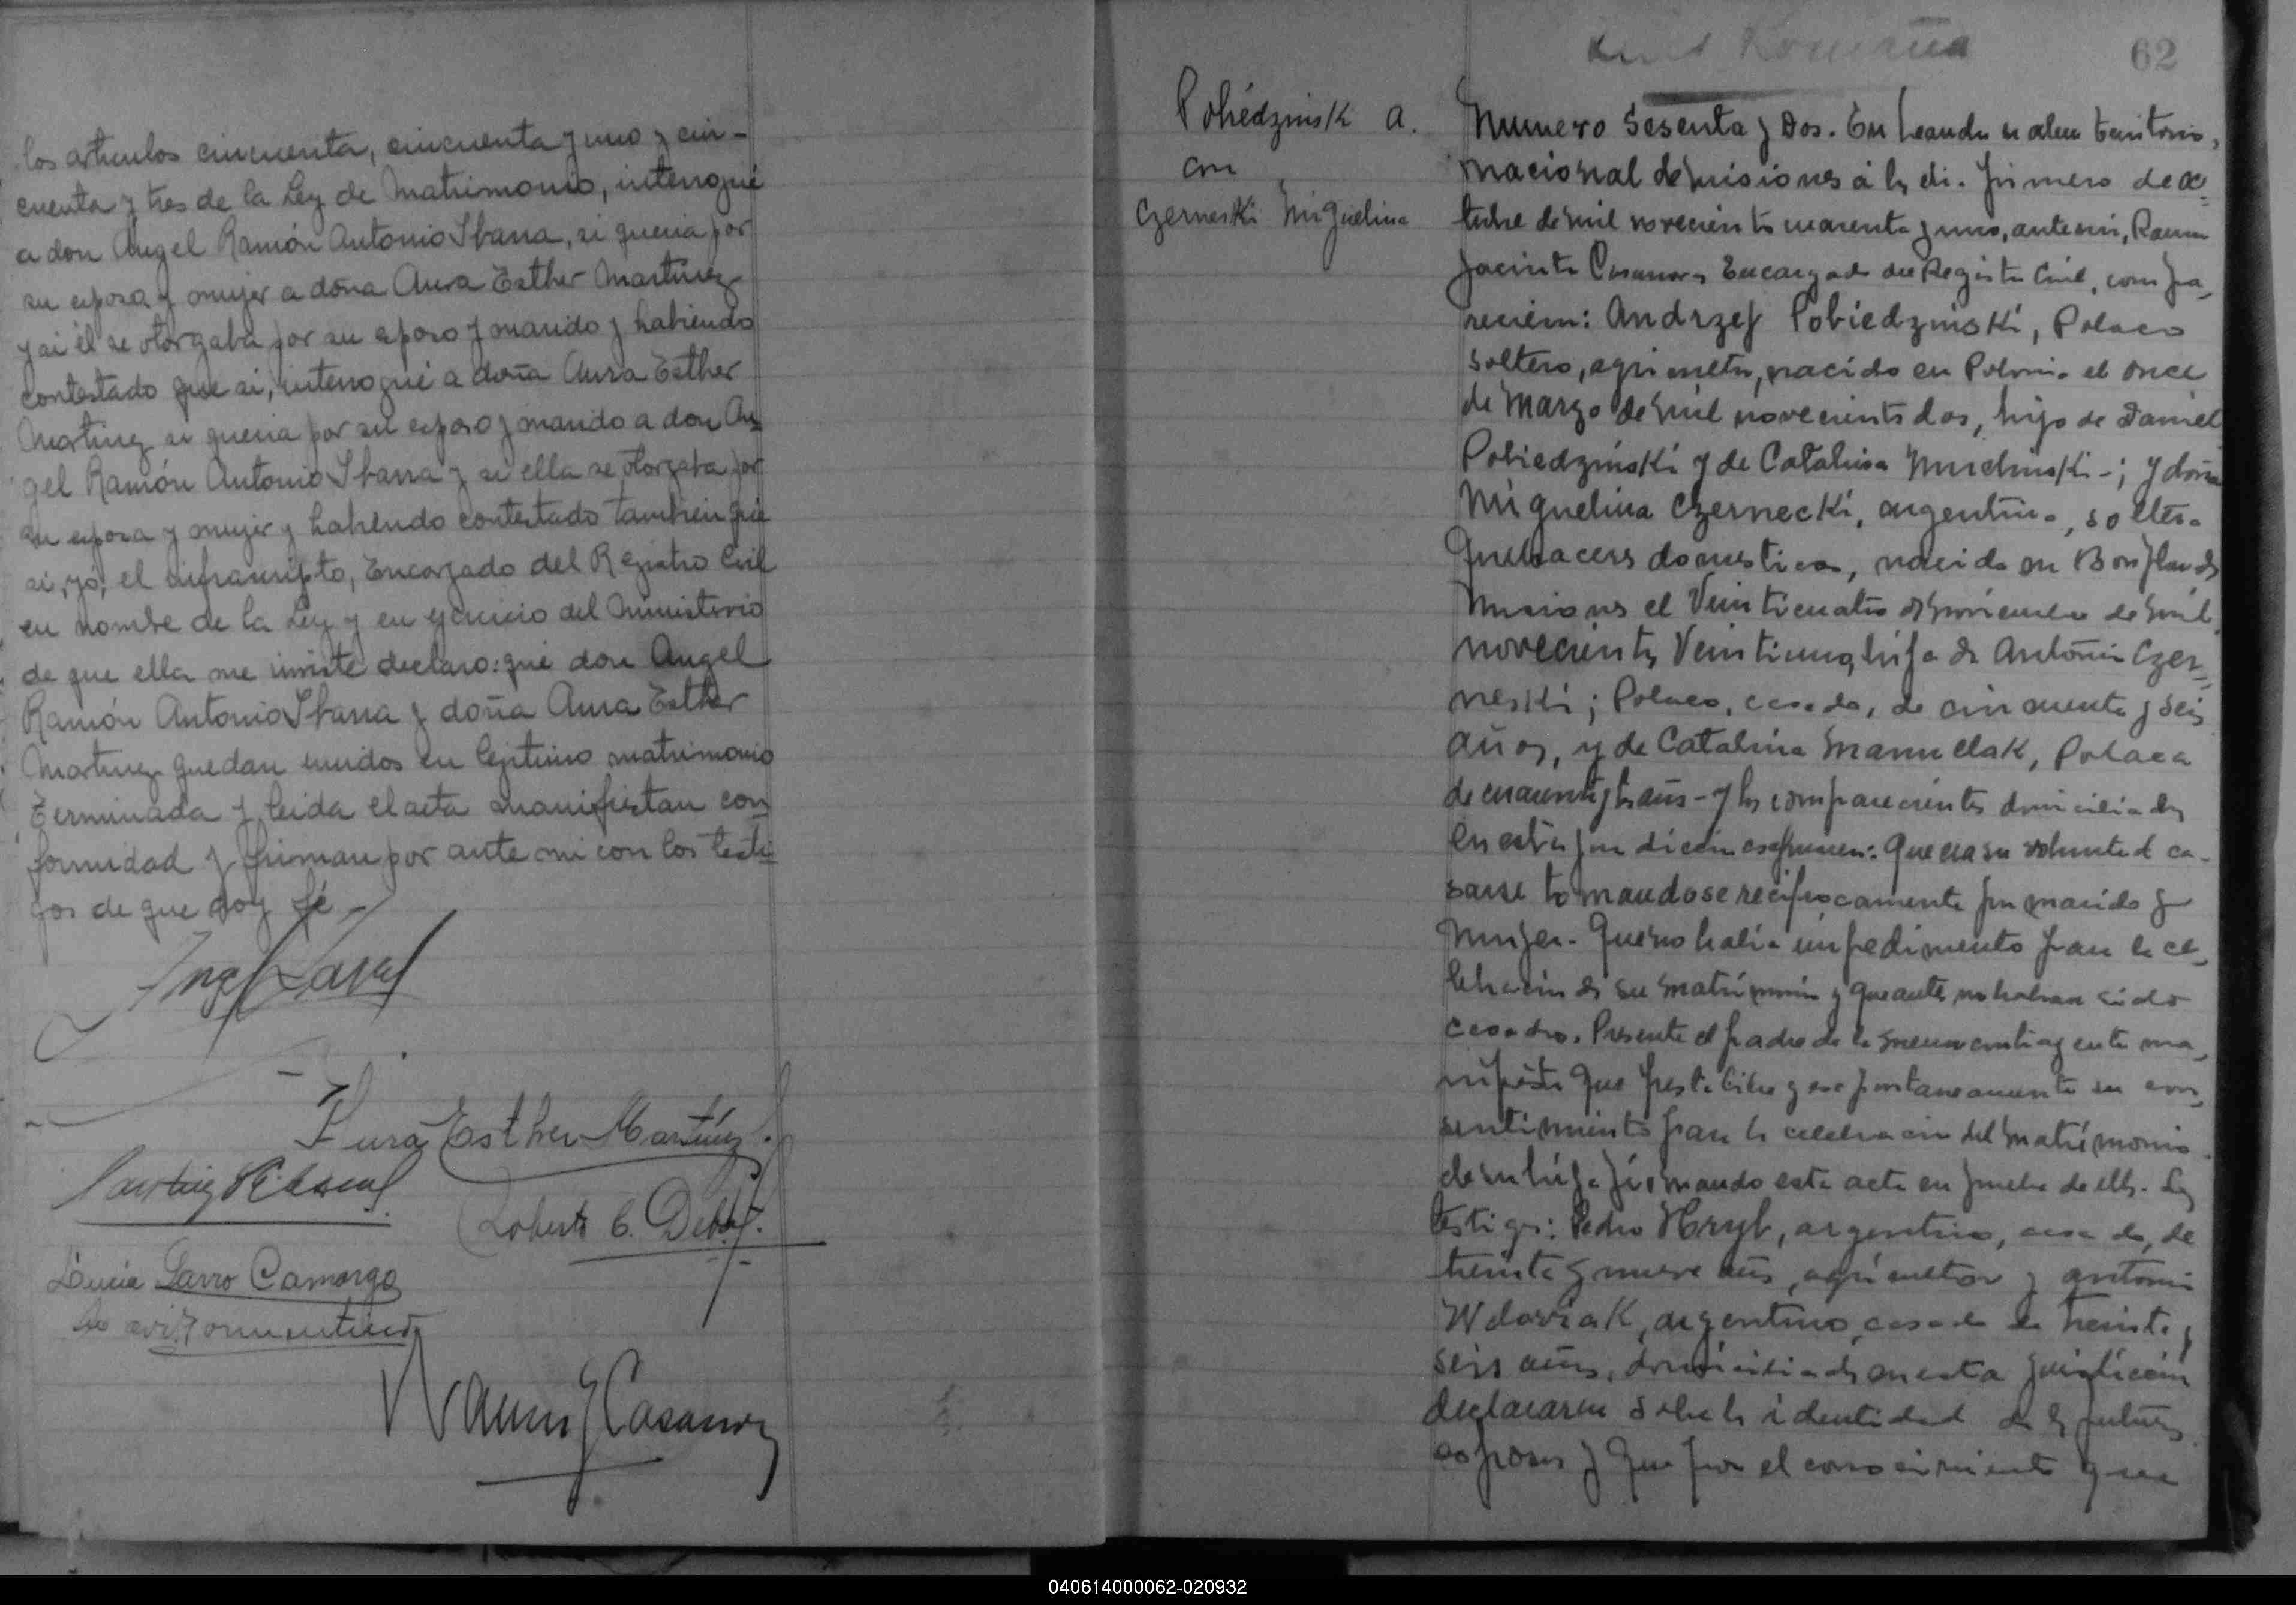 los articulos cincuenta, cincuenta y uno y cin-
cuenta y tres de la Ley de Matrimonio, interrogué
a don Angel Ramón Antonio Ibarra, si queria por
su esposa y mujer a doña Aura Esther Martinez
y si él se otorgaba por su esposo y marido y habiendo
contestado que si, interrogué a doña Aura Esther
Martinez si queria por su esposo y marido a don An
gel Ramón Antonio Ibarra y si ella se otorgaba por
su esposa y mujer y habiendo contestado tambien que
si, yó, el infrascripto, Encargado del Registro Civil
en nombre de la Ley y en ejercicio del Ministerio
de que ella me inviste declaro: que don Angel
Ramón Antonio Ibarra y doña Aura Esther
Martinez quedan unidos en legitimo matrimonio
Terminada y leida el acta manifiestan con
formidad y firman por ante mi con los testi
gos de que doy fé -
Aura Esther Martínez
Roberto C.
Lucia Larro Camargo
Ramon J Casanova
62
Pobiedzinsk A.
con
Czerneski Miguelina
Numero Sesenta y Dos. En Leandro n alem territorio
nacional de misiones á los di. primero de oc
tubre de mil novecientos cuarenta y uno, ante mi, Ramon
Jacinto Casanova Encargado del Registro Civil, compa
recien: Andrzej Pobiedzinski, Polaco
soltero, agricultor, nacido en Polonia el once
de Marzo de mil novecientos dos, hijo de Daniel
Pobiedzinski y de Catalina -; y doña
Miguelina Czernecki, argentina, soltera
Quehaceres domesticos, nacida en Bonpland
Misiones el Veinticuatro de de mil
novecientos Veintiuno, hija de Antonio Czer
neski; Polaco, casado, de cincuenta y seis
años, y de Catalina Manuelak, Polaca
de años - y los comparecientes domiciliados
en esta jurisdiccion expusieron: Que era su voluntad ca-
sarse tomandose reciprocamente por marido y
Mujer - Que no habia impedimento para la ce
lebracion de su matrimonio y que antes no habian sido
casados. Presente el padre de la menor contrayente ma
nifiesta que presta libre y espontaneamente su con
sentimiento para la celebracion del matrimonio
de su hija firmando esta acta en prueba de ello. Los
testigos: Pedro Hryb, argentino, casado, de
treinta y nueve años, agricultor y Antonio
Wdoviak, argentino, casado de treinta y
seis años, domiciliados en esta jurisdiccion
declararon sobre la identidad de los futuros
esposos y que por el conocimiento que
040614000062-020932